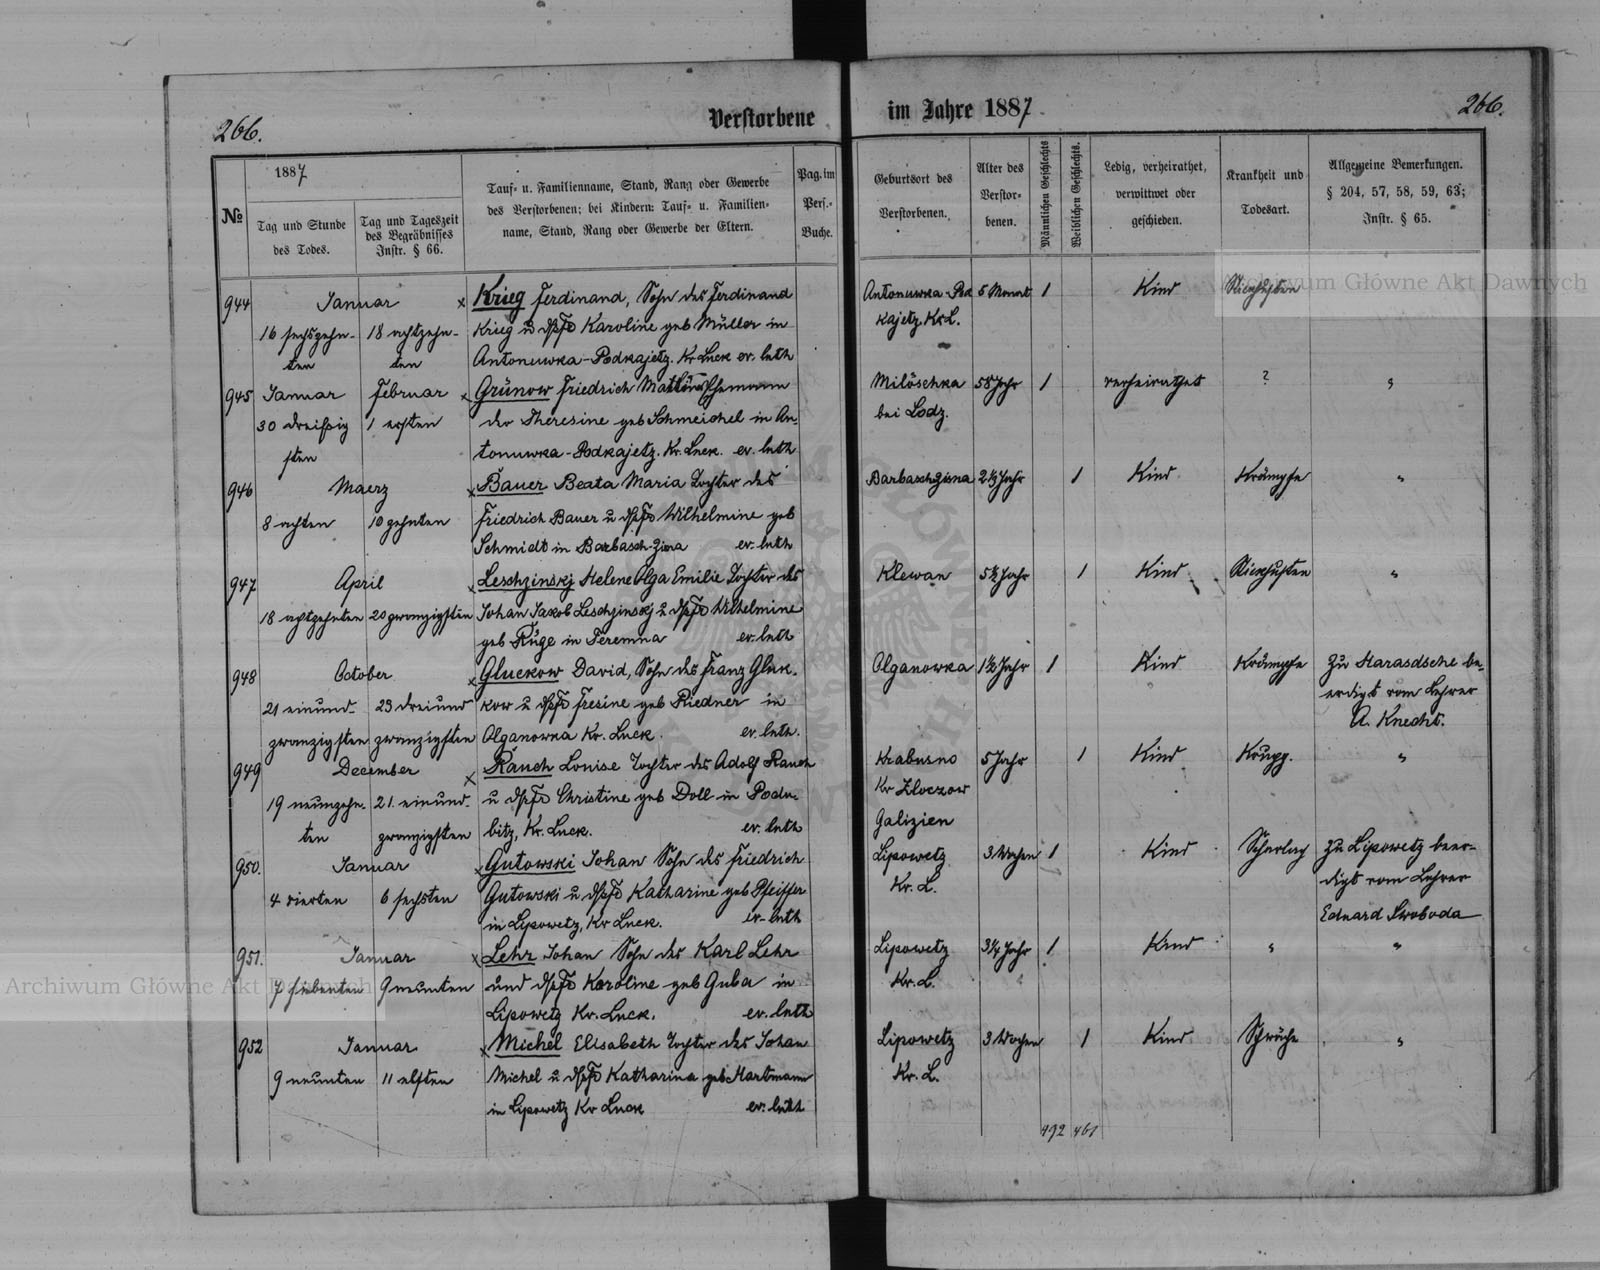 266.
Verstorbene im Jahre 1887.
266.
№
1887
Tag und Stunde
des Todes.
Tag und Tageszeit
des Begräbnisses
Instr. § 66.
Tauf- u. Familienname, Stand, Rang oder Gewerbe
des Verstorbenen; bei Kindern: Tauf- u. Familien-
name, Stand, Rang oder Gewerbe der Eltern.
Pag. im
Pers.-
Buche.
Geburtsort des
Verstorbenen.
Alter des
Verstor-
benen.
Männlichen Geschlechts
Weiblichen Geschlechts.
Ledig, verheirathet,
verwittwet oder
geschieden.
Krankheit und
Todesart.
Allgemeine Bemerkungen.
§ 204, 57, 58, 59, 63;
Instr. § 65.
944
Januar
16 sechszehn-
ten
18 achtzehn-
ten
x Krieg Ferdinand, Sohn des Ferdinand
Krieg u dssFr Karoline geb Müller in
Antonuwka-Podkajetz. Kr Luck ev. luth
Antonuwka-Pod
kajetz. Kr. L.
5 Monat
1
Kind
Stickhusten
945
Januar
30 dreißig
sten
Februar
1 ersten
x Grünow Friedrich Ehemann
der Theresine geb Schmeichel in An-
tonuwka-Podkajetz. Kr. Luck. ev. luth
Miloschka
bei Lodz.
58 Jahr
1
verheirathet
?
"
946
Maerz
8 achten
10 zehnten
x Bauer Beata Maria Tochter des
Friedrich Bauer u dssFr Wilhelmine geb
Schmidt in Barbasch-Zina ev. luth
Barbaschzina
2½ Jahr
1
Kind
Krämpfe
"
947
April
18 achtzehnten
20 zwanzigsten
x Leschzinskj Helene Olga Emilie Tochter des
Johan Jakob Leschzinskj u dssFr Wilhelmine
geb Rüge in Teremna ev. luth
Klewan
5½ Jahr
1
Kind
Stickhusten
"
948
October
21 einund-
zwanzigsten
23 dreiund
zwanzigsten
x Gluckow David, Sohn des Franz Gluk-
kow u dssFr Fresine geb Riedner in
Olganowka Kr. Luck. ev. luth.
Olganowka
1½ Jahr
1
Kind
Krämpfe
Zu Harasdsche be-
erdigt vom Lehrer
A. Knecht.
949
December
19 neunzehn-
ten
21. einund-
zwanzigsten
x Rauch Louise Tochter des Adolf Rauch
u dssFr Christine geb Doll in Podu-
bitz, Kr. Luck. ev. luth
Krabusno
Kr Zloczow
Galizien
5 Jahr
1
Kind
Krupp.
"
950.
Januar
4 vierten
6 sechsten
x Gutowski Johan Sohn des Friedrich
Gutowski u dssFr Katharine geb Pfeiffer
in Lipowetz, Kr Luck. ev-luth
Lipowetz
Kr. L.
3 Wochen
1
Kind
Scharlach
Zu Lipowetz beer-
digt vom Lehrer
Eduard Swoboda
951.
Januar
7 siebenten
9 neunten
x Lehr Johan Sohn des Karl Lehr
und dssFr Karoline geb Guba in
Lipowetz Kr. Luck. ev. luth
Lipowetz
Kr. L.
3¼ Jahr
1
Kind
"
"
952
Januar
9 neunten
11 elften
x Michel Elisabeth Tochter des Johan
Michel u dssFr Katharina geb Hartmann
in Lipowetz Kr Luck ev. luth
Lipowetz
Kr. L.
3 Wochen
1
Kind
Schwäche
"
492 461
Archiwum Główne Akt Dawnych
Archiwum Główne Akt Dawnych